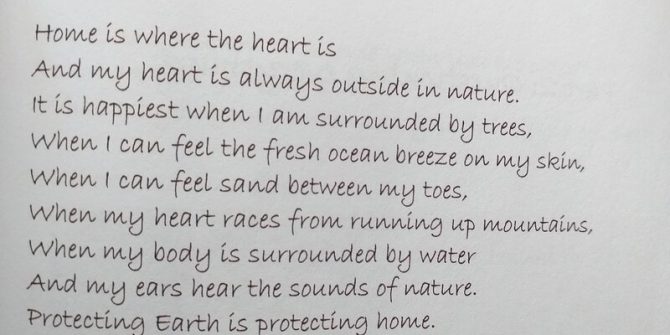 Home is where the heart is
And my heart is always outside in nature.
It is happiest when I am surrounded by trees,
When I can feel the fresh ocean breeze on my skin,
When I can feel sand between my toes,
When my heart races from running up mountains,
When my body is surrounded by water
And my ears hear the sounds of nature.
Protecting Earth is protecting home.